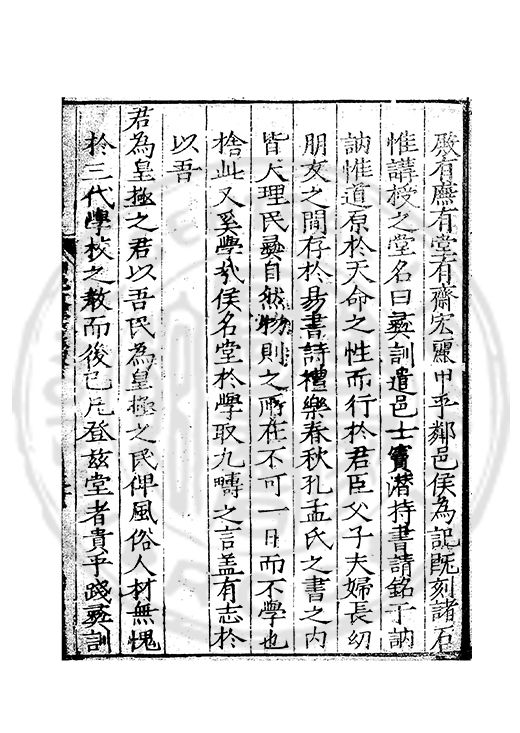 殿有廡有堂有齋宏麗甲乎鄰邑侯為記旣刻諸石
惟講授之堂名曰彝訓遣邑士竇潛持書請銘于訥
訥惟道原於天命之性而行於君臣父子夫婦長幼
朋友之間存於易書詩禮樂春秋孔孟氏之書之內
皆天理民彝自然物則之所在不可一日而不學也
捨此又奚學哉侯名堂於學取九疇之言盖有志於
以吾
君為皇極之君以吾民為皇極之民俾風俗人材無愧
於三代學校之教而後已凡登兹堂者貴乎踐彝訓